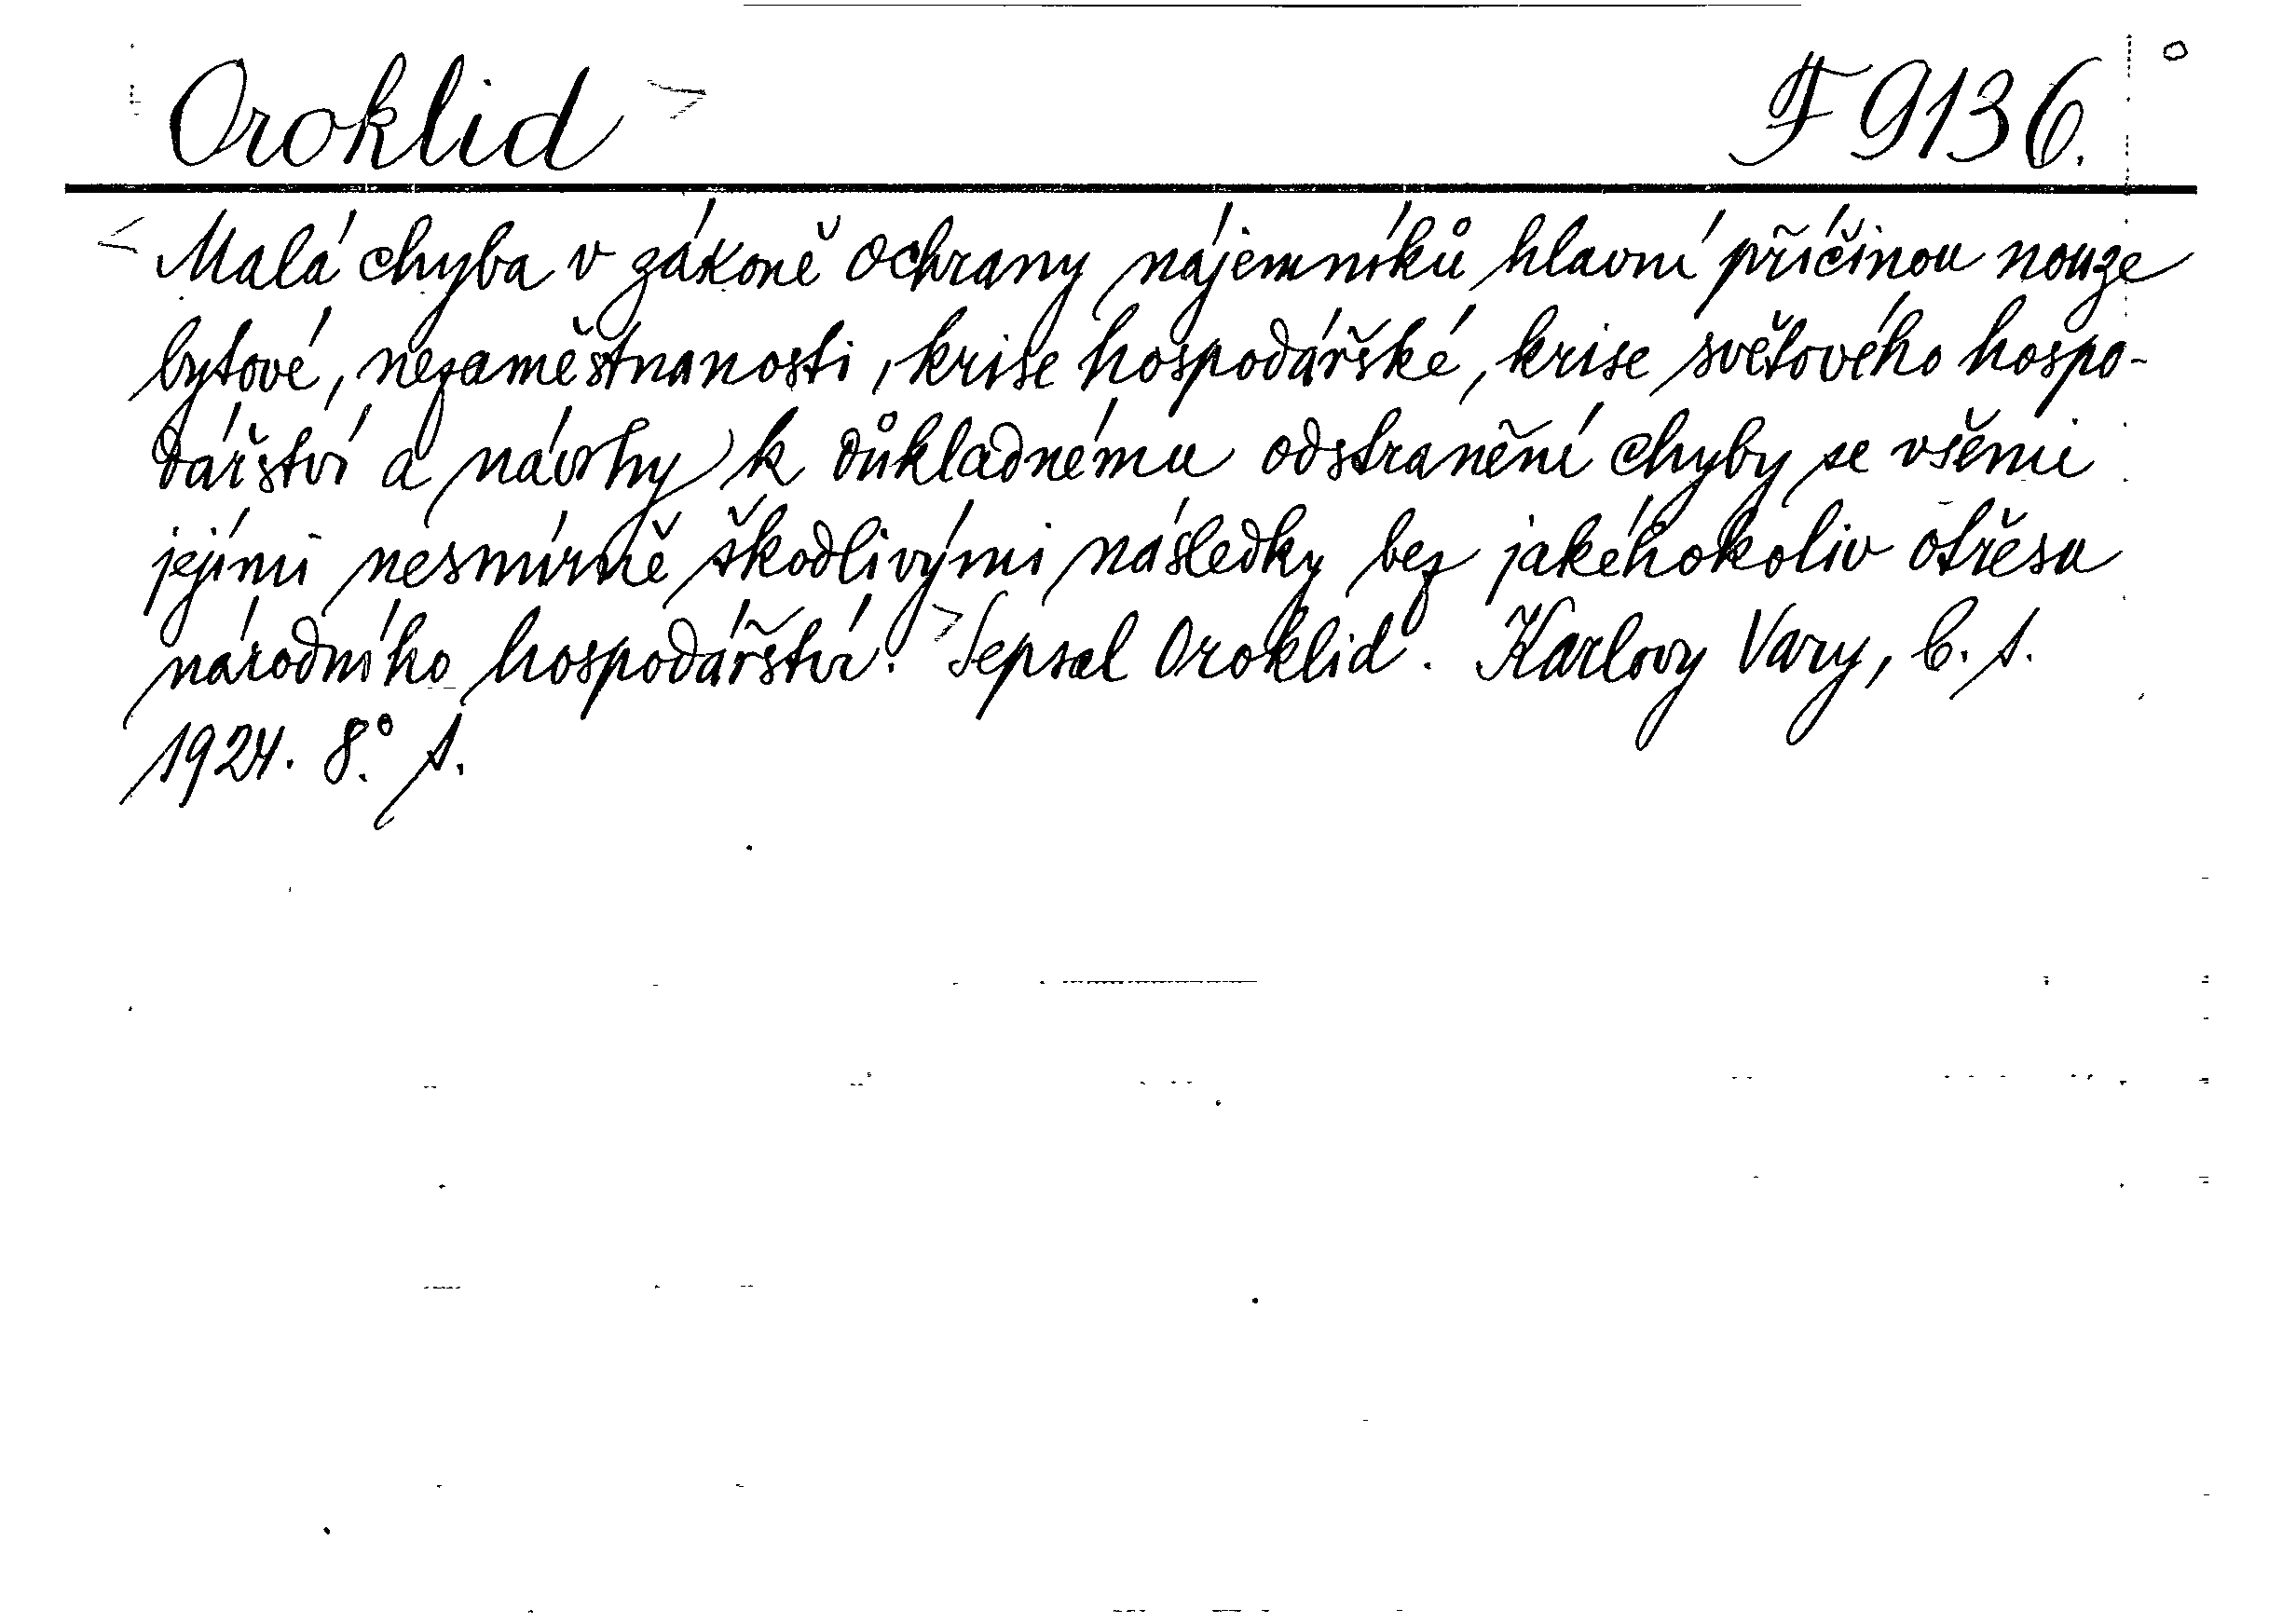 Oroklid F 9136.
Malá chyba v zákoně ochrany nájemníků hlavní příčinou nouze
bytové, nezaměstnanosti, krise hospodářské, krise světového hospo-
dářství a návrhy k důkladnému odstranění chyby se všemi
jejími nesmírně škodlivými následky bez jakéhokoliv otřesu
národního hospodářství. Sepsal Oroklid. Karlovy Vary, b. t.
1924. 8°. s.